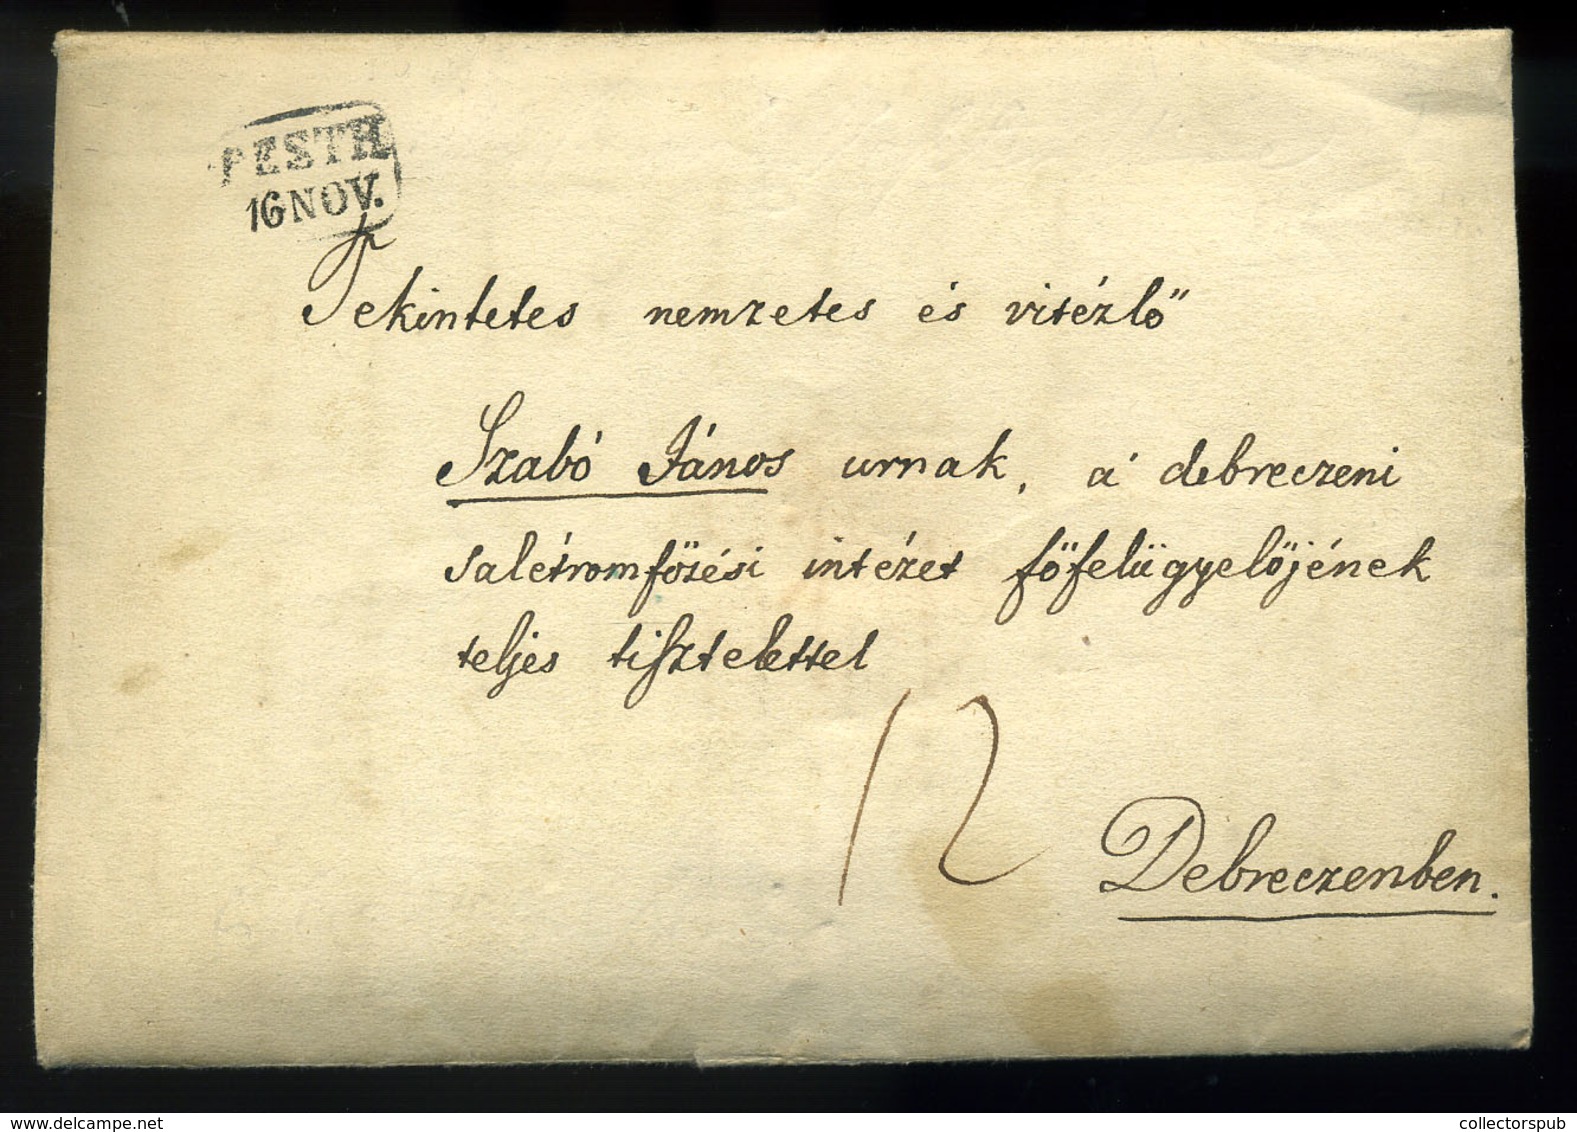 PESTH
16 NOV.
Tekintetes nemzetes és vitézlő
Szabó János urnak, á debreczeni
salétromfőzési intézet főfelügyelőjének
teljes tiſztelettel
12
Debreczenben.
collectorspub